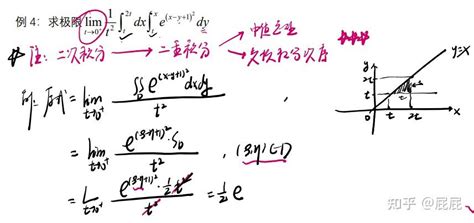 例 4：求极限 lim_{t→0⁺} 1/t² ∫_t^{2t} dx ∫_t^x e^{(x-y+1)²} dy
注：二次积分 → 二重积分 → 中值定理
→ 交换积分次序
解：原式 = lim_{t→0⁺} ∬_D e^{(x-y+1)²} dxdy / t² ,
= lim_{t→0⁺} e^{(ξ-η+1)²}·S_D / t² , (ξ,η)∈D
= lim_{t→0⁺} e^{(ξ-η+1)²}·½t² / t² = ½e
y y=x
2t
t
0 t 2t x
知乎 @屁屁